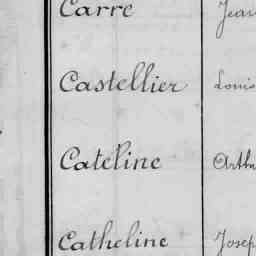 Carre Jean
Castellier Louis
Cateline
Catheline